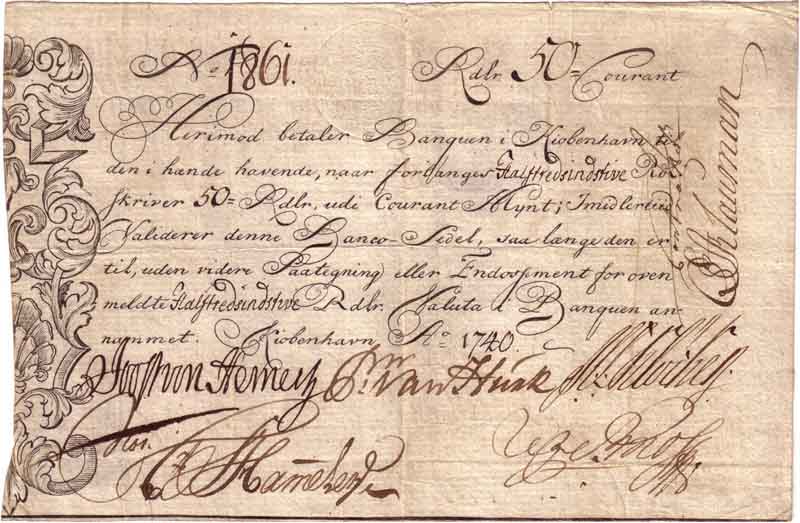 No 1861. Rdlr. 50= Courant
Herimod betaler Banquen i Kiøbenhavn til
den i hænde havende, naar forlanges Halftredsindstive Rdl
skriver 50= Rdlr. udi Courant Mynt; Imidlertiid
Validerer denne Banco-Sedel, saa længe den er
til, uden videre Paategning eller Endossement for oven
meldte Halftredsindstive Rdlr. Valuta i Banquen an-
nammet. Kiøbenhavn Ao 1740.
Joost von Hemert Pr. van Hurk